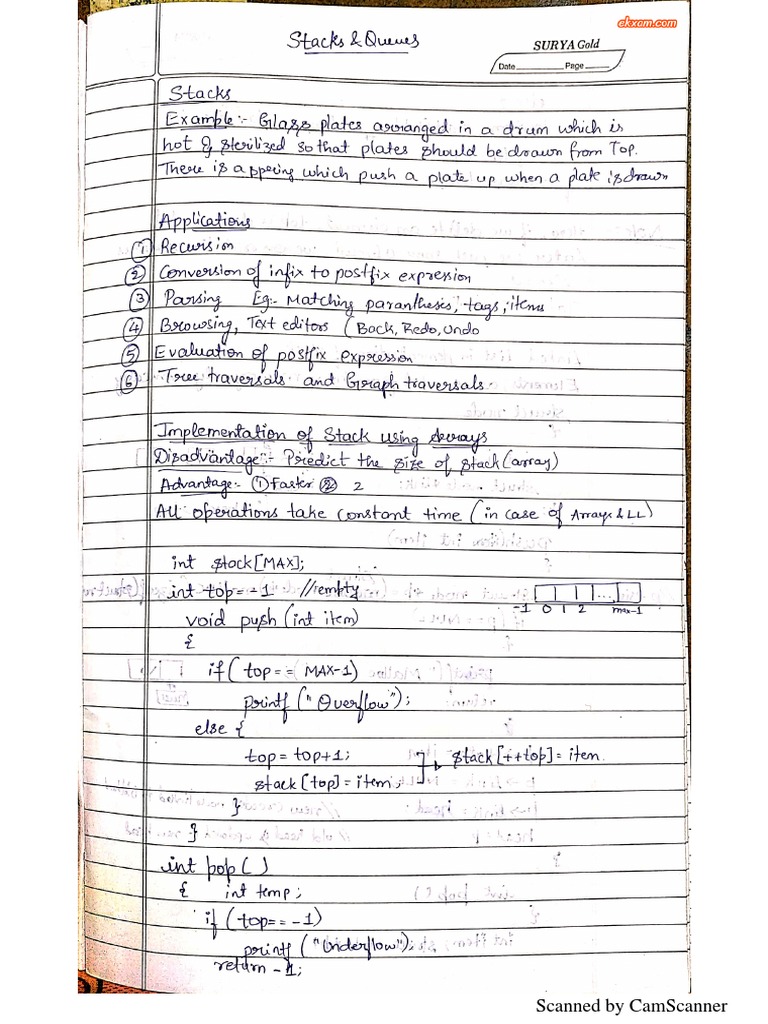 ekxam.com
Stacks & Queues
SURYA Gold
Date Page
Stacks
Example:- Glass plates arranged in a drum which is
hot & sterilized so that plates should be drawn from Top.
There is a which push a plate up when a plate is drawn
Applications
① Recursion
② Conversion of infix to postfix expression
③ Parsing Eg:- Matching paranthesis, tags, items
④ Browsing, Text editors (Back, Redo, undo
⑤ Evaluation of postfix expression
⑥ Tree traversals and Graph traversals.
Implementation of Stack using Arrays
Disadvantage:- Predict the size of stack (array)
Advantage:- ① Faster ② 2
All operations take constant time (in case of Arrays & LL)
int stack[MAX];
int top = -1 //empty
-1 0 1 2 ... max-1
void push (int item)
{
if( top == MAX-1)
printf (" Overflow");
else {
top = top+1; stack [++top] = item.
stack [top] = item;
}
}
int pop ( )
{ int temp;
if (top == -1)
printf ("Underflow");
return -1;
Scanned by CamScanner